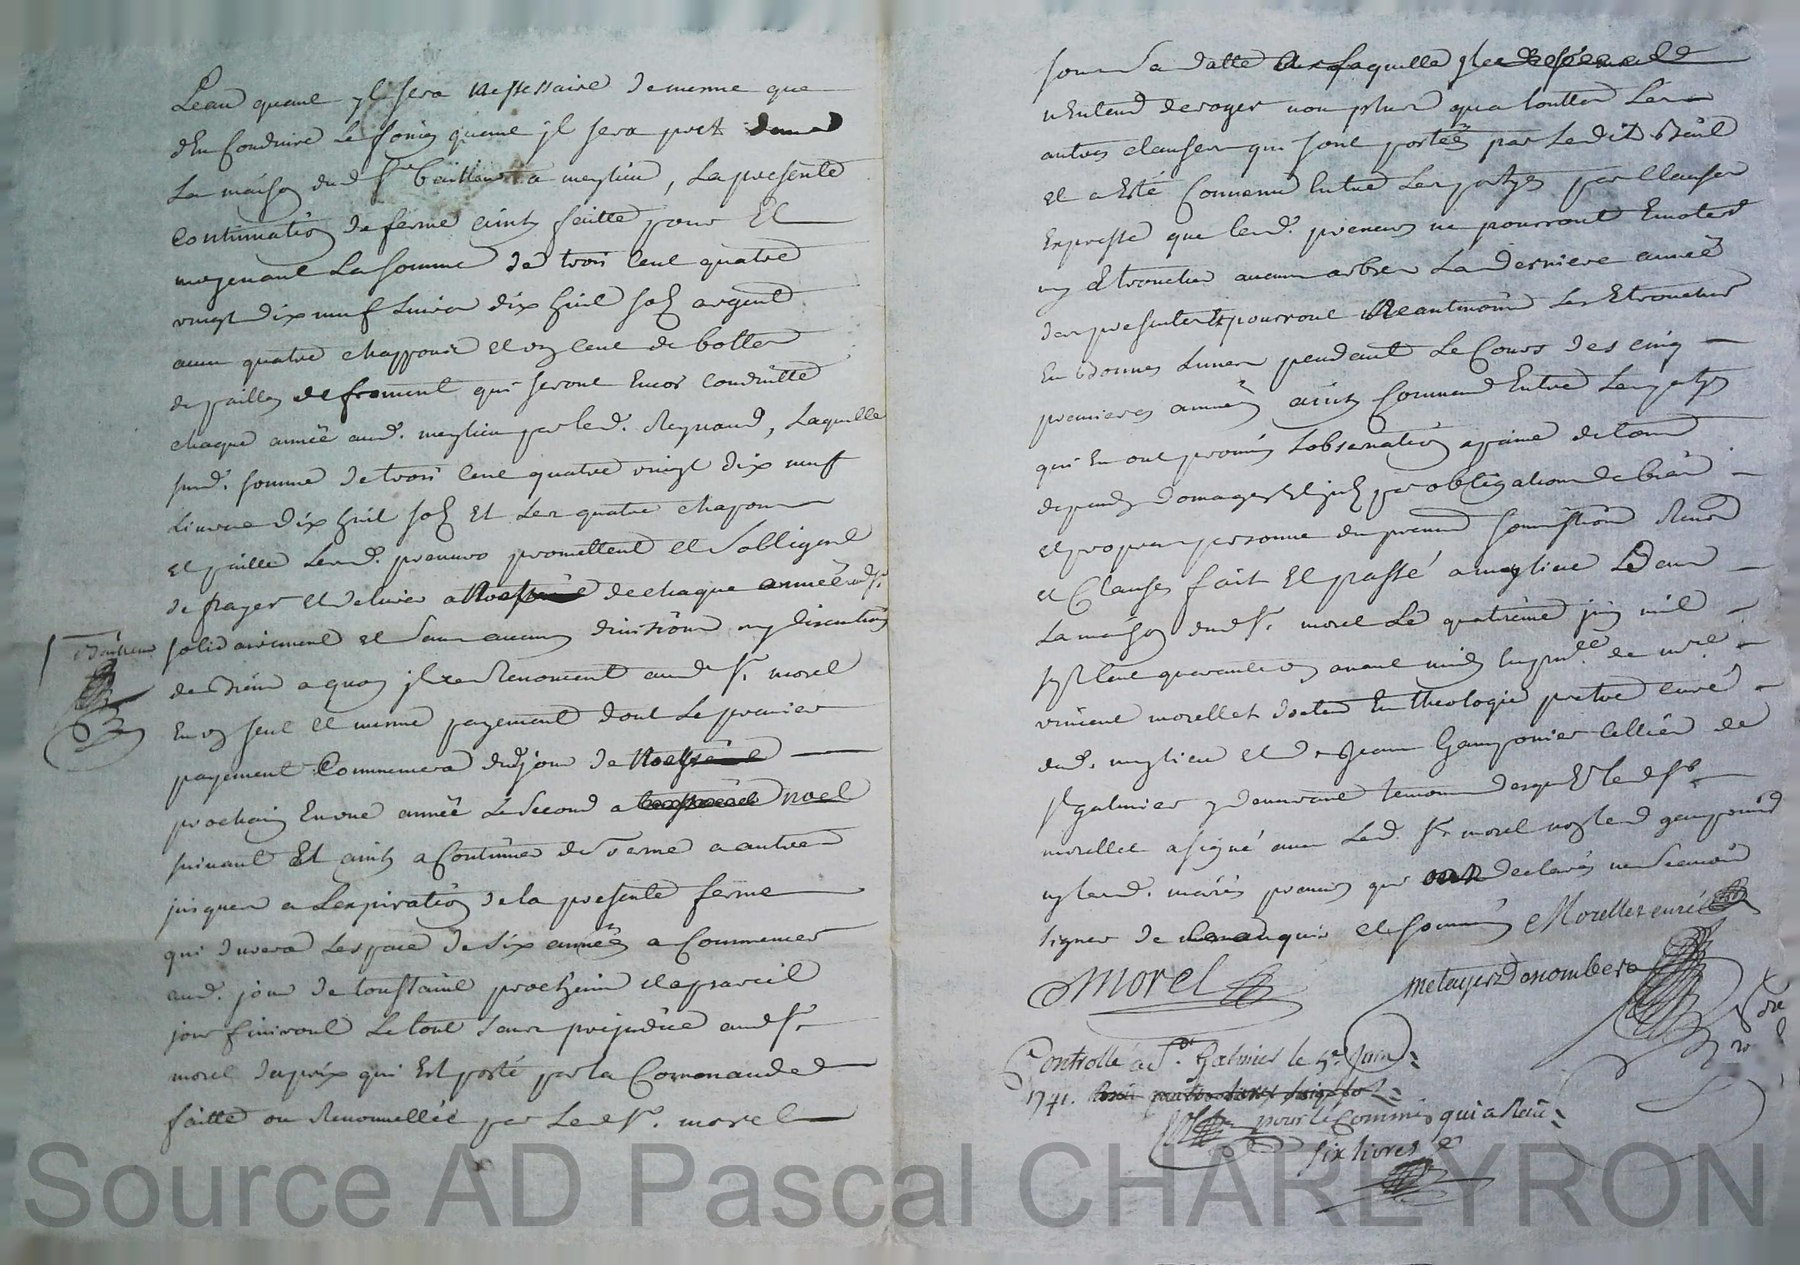 Leau quant yl sera nessessaire de mesme que
dEn Conduire Le foing quand jl sera pret dans
La maison dud Sr bailleur a meylieu, La presente
Continuation de ferme ainsy faitte pour Et
moyenant La somme de trois Cent quatre
vingt dix neuf Livres dix huit sols argent
avec quatre chappons et un Cent de bottes
de pailles de froment qui seront Encor Conduitte
chaque année aud. meylieu par led. Reynaud, Laquelle
sud. somme de trois Cent quatre vingt dix neuf
Livres dix huit sols Et Les quatre chapons
et paille Lesd. preneurs promettent et Sobligent
de payer et delivrer a de chaque année aud Sr
solidairement et Sans aucune division ny discution
de biens a quoy jls Renoncent aud Sr. morel
En un seul et mesme payement dont Le premier
payement Commencera dudjour de
prochain En une année Le Second a noel
suivant Et ainsy a Continuer de Terme a autre
jusques a Lexpiration de la presente ferme
qui durera Lespace de Six années a Commencer
aud. jour de toussaint prochain et a pareil
jour finiront Le tout Sans prejudice aud Sr.
morel du prix qui Est porté par la Commande
faitte ou Renouvellée par Led Sr. morel
sous Sa datte a Laquelle yl
nEntend deroger non plus qua touttes Les
autres clauses qui sont portées par Ledit Bail
et a Esté Convenu Entre Les partyes par Clause
Expresse que lesd. preneurs ne pourront Emoter
ny Etroncher aucun arbre La derniere année
des presentes Et pourront Neantmoins Les Etroncher
En bonnes Lunes pendant Le Cours des cinq
premieres années ainsy Convenu Entre Les partyes
qui En ont promis Lobservation a peine de tous
depends domages et jnts par obligation de biens
et propres personne du preneur soumission Renon
et Clauses fait Et passé a meylieu Dans
La maison dud Sr. morel Le quatrieme juin mil
sept Cent quarante un avant midy En presence de mre
vincent morellet docteur En theologie pretre curé
dud. meylieu et de Jean Gamponier Cellier de
St galmier y demeurant temoins desquels led Sr
morellet a signé avec Led. Sr morel non led gamponier
ny lesd. mariés preneurs qui ont declarés ne Scavoir
signer de ce Enquis et Sommés Morellet curé
Morel
metayer Donombera
Controllé a St. Galmier le 5e Juin
1741.
pour le Commis qui a Recu
six livres
Source AD Pascal CHARLEYRON